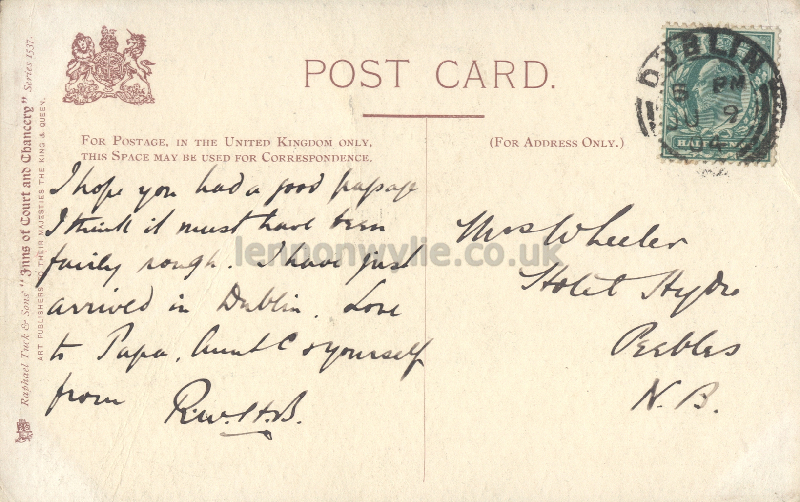 POST CARD.
For Postage, in the United Kingdom only,
this Space may be used for Correspondence.
(For Address Only.)
Raphael Tuck & Sons' "Inns of Court and Chancery" Series 1537.
Art Publishers to Their Majesties the King & Queen.
DUBLIN
PM
9
04
HALF
I hope you had a good passage
I think it must have been
fairly rough. I have just
arrived in Dublin. Love
to Papa, Aunt C & yourself
from R.W.H.B.
Mrs Wheeler
Hotel Hydro
Peebles
N.B.
lennonwylie.co.uk